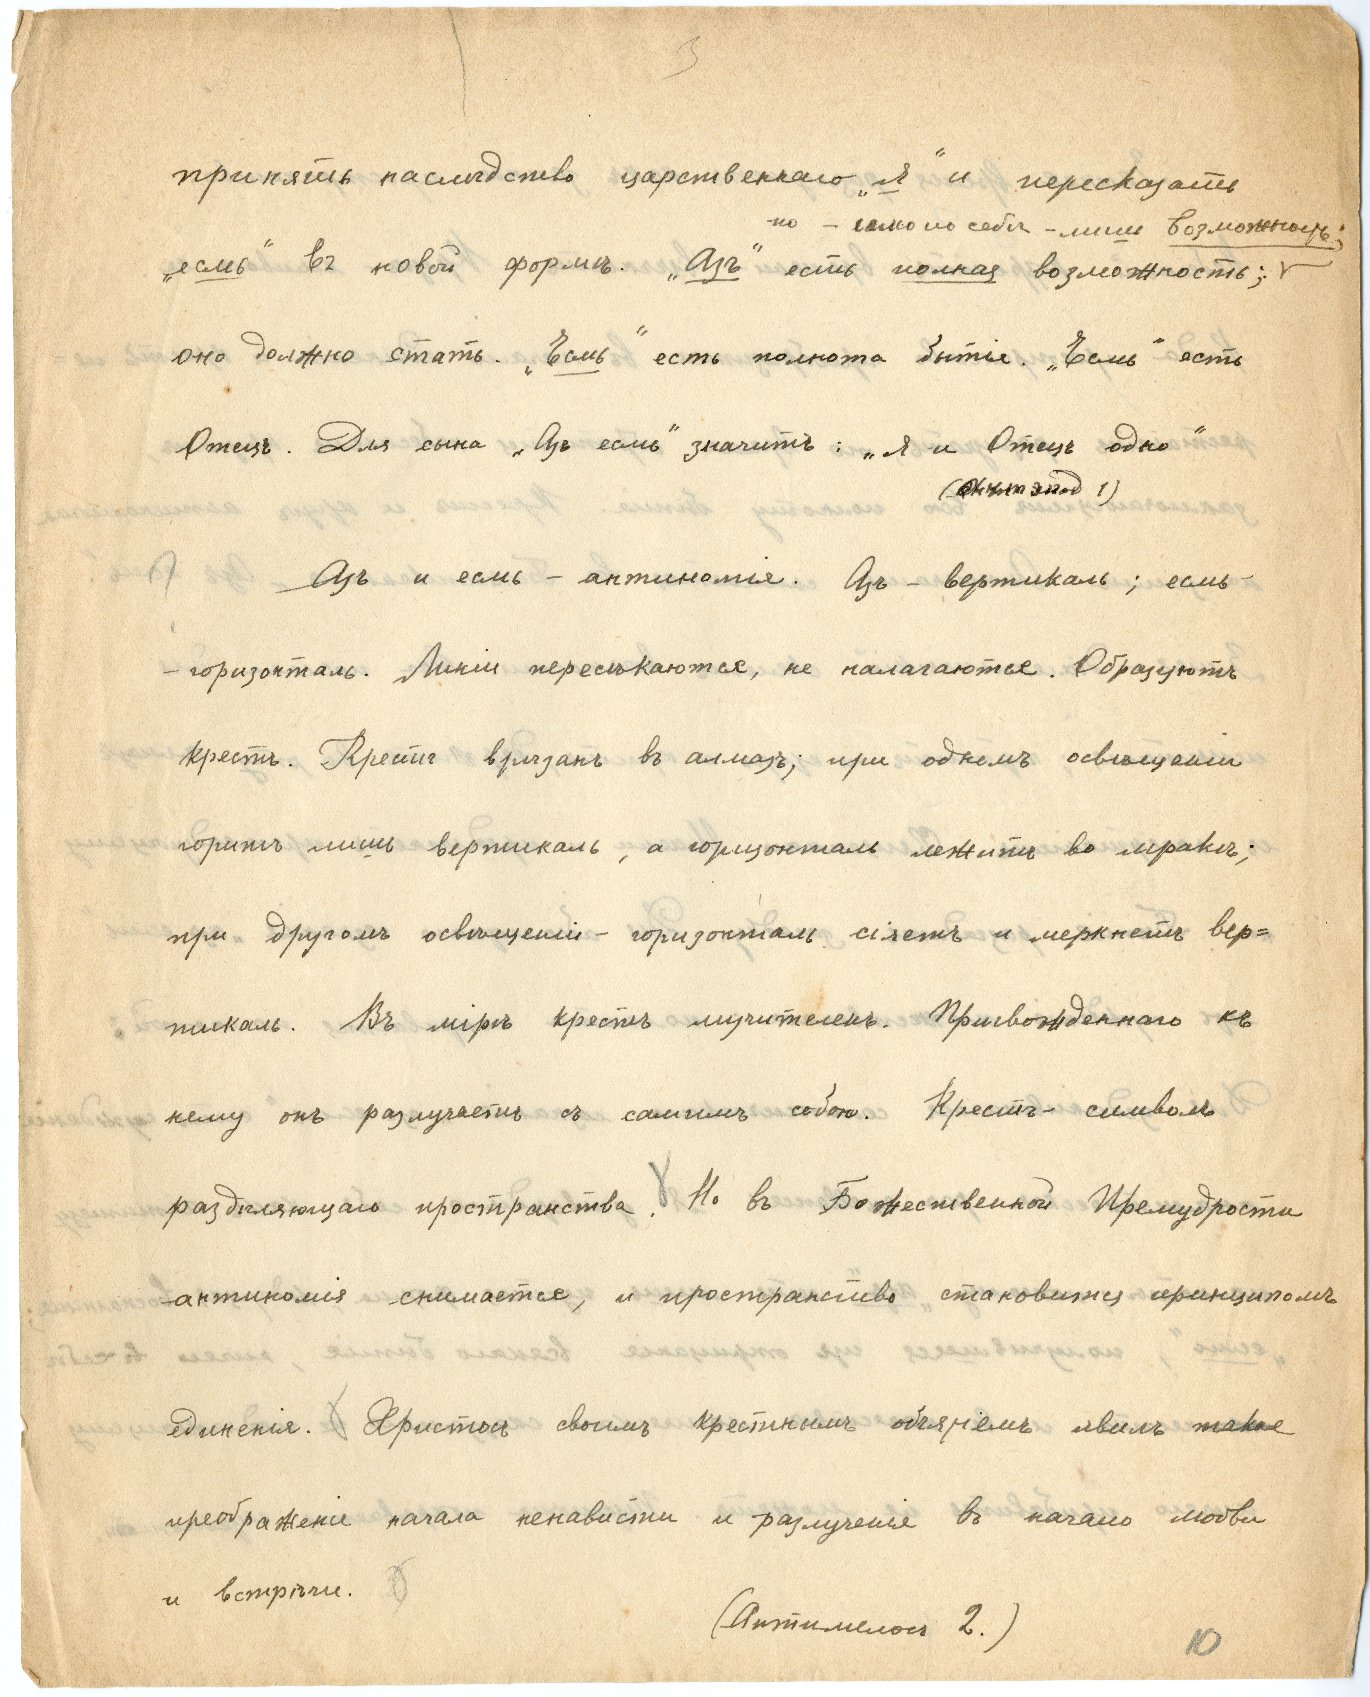 3
принять наслѣдство царственнаго „Я" и пересказать
но – само по себѣ – лишь возможность;
„есмь" въ новой формѣ. „Азъ" есть полная возможность;
оно должно стать. „Есмь" есть полнота бытія. „Есмь" есть
Отецъ. Для сына „Азъ есмь" значитъ: „я и Отецъ одно"
1)
Азъ и есмь – антиномія. Азъ – вертикаль; есмь –
– горизонталь. Линіи пересѣкаются, не налагаются. Образуютъ
крестъ. Крестъ врѣзанъ въ алмазъ; при одномъ освѣщеніи
горитъ лишь вертикаль, а горизонталь лежитъ во мракѣ;
при другомъ освѣщеніи – горизонталь сіяетъ и меркнетъ вер=
тикаль. Въ мірѣ крестъ мучителенъ. Пригвожденнаго къ
нему онъ разлучаетъ съ самимъ собою. Крестъ – символъ
раздѣляющаго пространства. Но въ Божественной Премудрости
антиномія снимается, и пространство становится принципомъ
единенія. Христосъ своимъ крестнымъ объятіемъ явилъ такое
преображеніе начала ненависти и разлученія въ начало любви
и встрѣчи.
(Антимелосъ 2.)
10